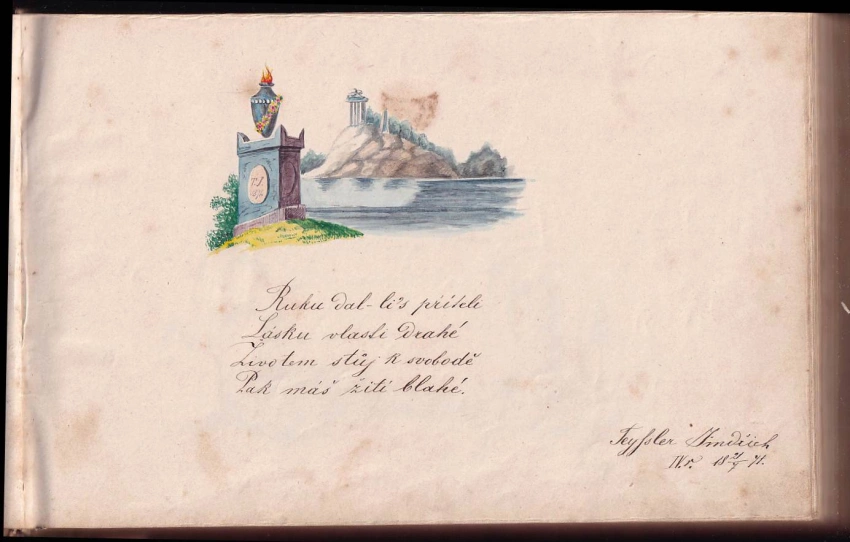 Ruku dal-li's příteli
Lásku vlasti drahé
Životem stůj k svobodě
Pak máš žití blahé.
Teyſsler Jindřich
IV. r. 18 71.